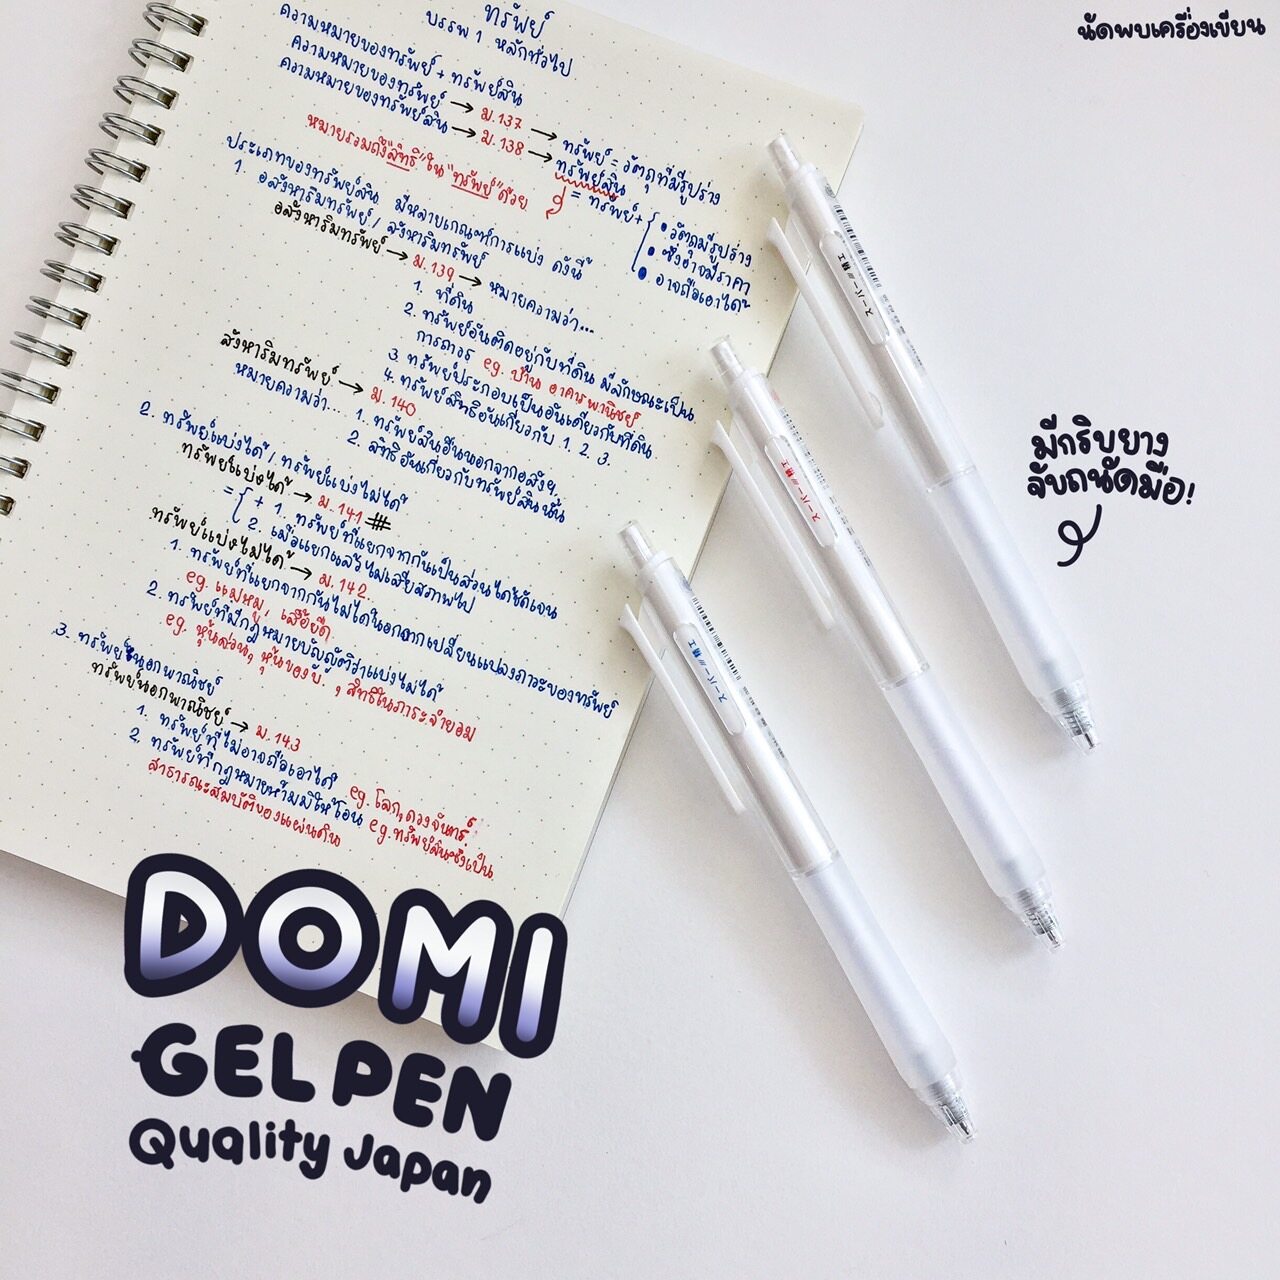 นัดพบเครื่องเขียน
ทรัพย์
บรรพ 1 หลักทั่วไป
ความหมายของทรัพย์ + ทรัพย์สิน
ความหมายของทรัพย์ → ม.137 → ทรัพย์ = วัตถุที่มีรูปร่าง
ความหมายของทรัพย์สิน → ม.138 → ทรัพย์สิน
= ทรัพย์ + { • วัตถุมีรูปร่าง
• ซึ่งอาจมีราคา
• อาจถือเอาได้
หมายรวมถึง "สิทธิ" ใน "ทรัพย์" ด้วย
ประเภทของทรัพย์สิน มีหลายเกณฑ์การแบ่ง ดังนี้
1. อสังหาริมทรัพย์ / สังหาริมทรัพย์
อสังหาริมทรัพย์ → ม.139 → หมายความว่า...
1. ที่ดิน
2. ทรัพย์อันติดอยู่กับที่ดิน มีลักษณะเป็น
การถาวร eg. บ้าน อาคารพาณิชย์
3. ทรัพย์ประกอบเป็นอันเดียวกับที่ดิน
4. ทรัพย์สิทธิอันเกี่ยวกับ 1. 2. 3.
สังหาริมทรัพย์ → ม.140
หมายความว่า... 1. ทรัพย์สินอื่นนอกจากอสังฯ
2. สิทธิอันเกี่ยวกับทรัพย์สินนั้น
2. ทรัพย์แบ่งได้ / ทรัพย์แบ่งไม่ได้
ทรัพย์แบ่งได้ → ม.141 #
= { + 1. ทรัพย์ที่แยกจากกันเป็นส่วนได้ชัดเจน
2. เมื่อแยกแล้วไม่เสียสภาพไป
ทรัพย์แบ่งไม่ได้ → ม.142
1. ทรัพย์ที่แยกจากกันไม่ได้นอกจากเปลี่ยนแปลงภาวะของทรัพย์
eg. แม่หมู, เสื้อยืด
2. ทรัพย์ที่มีกฎหมายบัญญัติว่าแบ่งไม่ได้
eg. หุ้นส่วน, หุ้นของบ., สิทธิในภาระจำยอม
3. ทรัพย์นอกพาณิชย์
ทรัพย์นอกพาณิชย์ → ม.143
1. ทรัพย์ที่ไม่อาจถือเอาได้ eg. โลก, ดวงจันทร์
2. ทรัพย์ที่กฎหมายห้ามมิให้โอน eg. ทรัพย์สินซึ่งเป็น
สาธารณะสมบัติของแผ่นดิน
スーパー///精工
スーパー///精工
スーパー///精工
มีกริบยาง
จับถนัดมือ!
DOMI
GEL PEN
Quality Japan